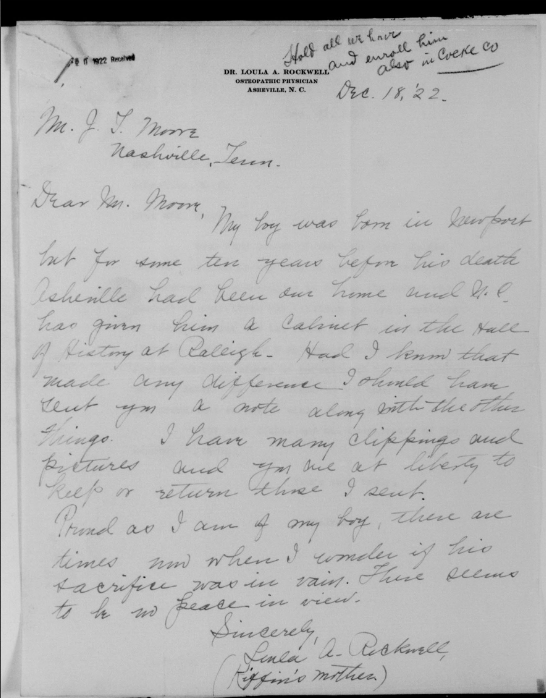 1922 Received
Hold all we have
and enroll him
also in Cocke Co
DR. LOULA A. ROCKWELL
OSTEOPATHIC PHYSICIAN
ASHEVILLE, N. C.
Dec. 18, '22.
Mr. J. T. Moore
Nashville, Tenn.
Dear Mr. Moore,
My boy was born in Newport
but for some ten years before his death
Asheville had been our home and N.C.
has given him a cabinet in the Hall
of History at Raleigh. Had I known that
made any difference I should have
sent you a note along with the other
things. I have many clippings and
pictures and you are at liberty to
keep or return those I sent.
Proud as I am of my boy, there are
times now when I wonder if his
sacrifice was in vain. There seems
to be no peace in view.
Sincerely,
Loula A. Rockwell,
(Kiffin's mother)